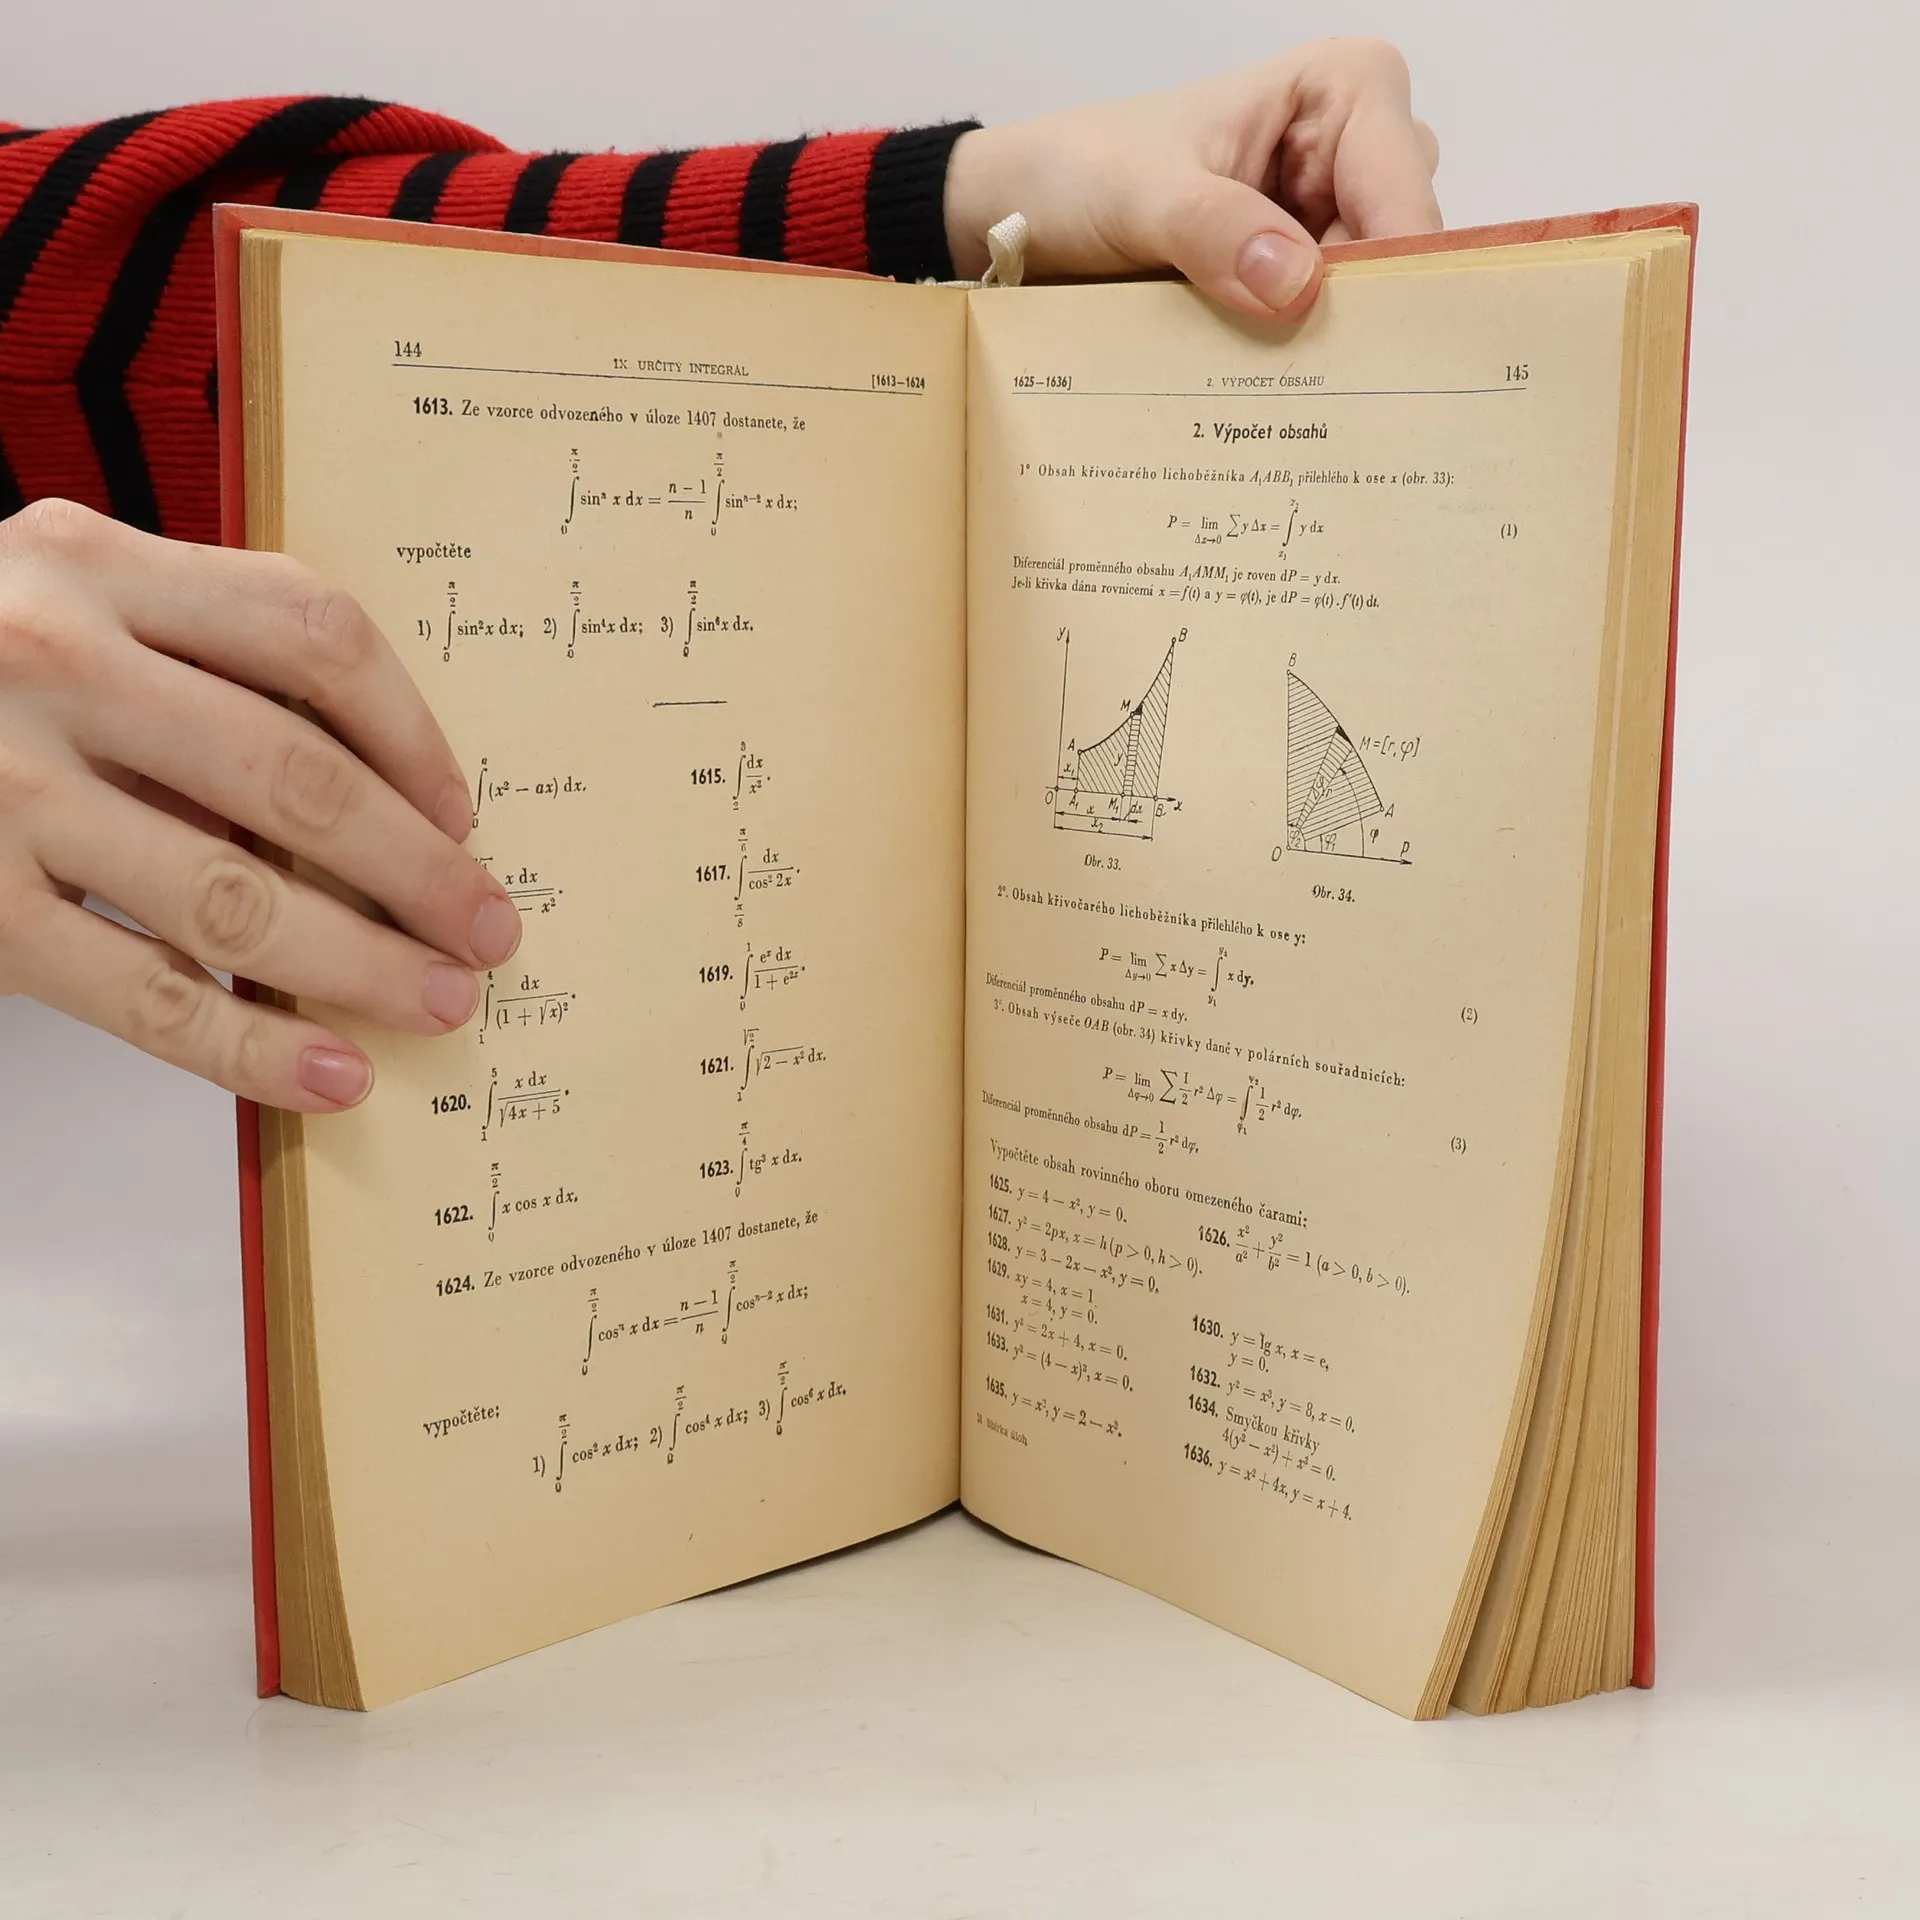 144
IX URČITÝ INTEGRÁL
[1613—1624
1613. Ze vzorce odvozeného v úloze 1407 dostanete, že
∫₀^(π/2) sinⁿ x dx = (n − 1)/n ∫₀^(π/2) sinⁿ⁻² x dx;
vypočtěte
1) ∫₀^(π/2) sin² x dx; 2) ∫₀^(π/2) sin⁴ x dx; 3) ∫₀^(π/2) sin⁶ x dx.
∫₀^a (x² − ax) dx. 1615. ∫₂³ dx/x².
x dx − x². 1617. ∫_(π/8)^(π/6) dx/cos² 2x.
∫₁⁴ dx/(1 + √x)². 1619. ∫₀¹ eˣ dx/(1 + e²ˣ).
1620. ∫₁⁵ x dx/√(4x + 5). 1621. ∫₁^(√2) √(2 − x²) dx.
1622. ∫₀^(π/2) x cos x dx. 1623. ∫₀^(π/4) tg³ x dx.
1624. Ze vzorce odvozeného v úloze 1407 dostanete, že
∫₀^(π/2) cosⁿ x dx = (n − 1)/n ∫₀^(π/2) cosⁿ⁻² x dx;
vypočtěte;
1) ∫₀^(π/2) cos² x dx; 2) ∫₀^(π/2) cos⁴ x dx; 3) ∫₀^(π/2) cos⁶ x dx.
1625—1636]
2. VÝPOČET OBSAHŮ
145
2. Výpočet obsahů
1° Obsah křivočarého lichoběžníka A₁ABB₁ přilehlého k ose x (obr. 33):
P = lim_(Δx→0) ∑ y Δx = ∫_(x₁)^(x₂) y dx (1)
Diferenciál proměnného obsahu A₁AMM₁ je roven dP = y dx.
Je-li křivka dána rovnicemi x = f(t) a y = φ(t), je dP = φ(t) . f′(t) dt.
y B M A x₁ y O A₁ M₁ dx B₁ x x x₂
Obr. 33.
B M=[r,φ] A r φ₂ φ₁ φ O P
Obr. 34.
2°. Obsah křivočarého lichoběžníka přilehlého k ose y:
P = lim_(Δy→0) ∑ x Δy = ∫_(y₁)^(y₂) x dy. (2)
Diferenciál proměnného obsahu dP = x dy.
3°. Obsah výseče OAB (obr. 34) křivky dané v polárních souřadnicích:
P = lim_(Δφ→0) ∑ 1/2 r² Δφ = ∫_(φ₁)^(φ₂) 1/2 r² dφ. (3)
Diferenciál proměnného obsahu dP = 1/2 r² dφ.
Vypočtěte obsah rovinného oboru omezeného čarami:
1625. y = 4 − x², y = 0.
1626. x²/a² + y²/b² = 1 (a > 0, b > 0).
1627. y² = 2px, x = h (p > 0, h > 0).
1628. y = 3 − 2x − x², y = 0.
1629. xy = 4, x = 1
x = 4, y = 0.
1630. y = lg x, x = e,
y = 0.
1631. y² = 2x + 4, x = 0.
1632. y² = x³, y = 8, x = 0.
1633. y² = (4 − x)³, x = 0.
1634. Smyčkou křivky
4(y² − x²) + x³ = 0.
1635. y = x², y = 2 − x².
1636. y = x² + 4x, y = x + 4.
Sbírka úloh